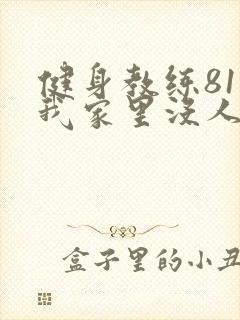 健身教练81
我家里没人
盒子里的小丑